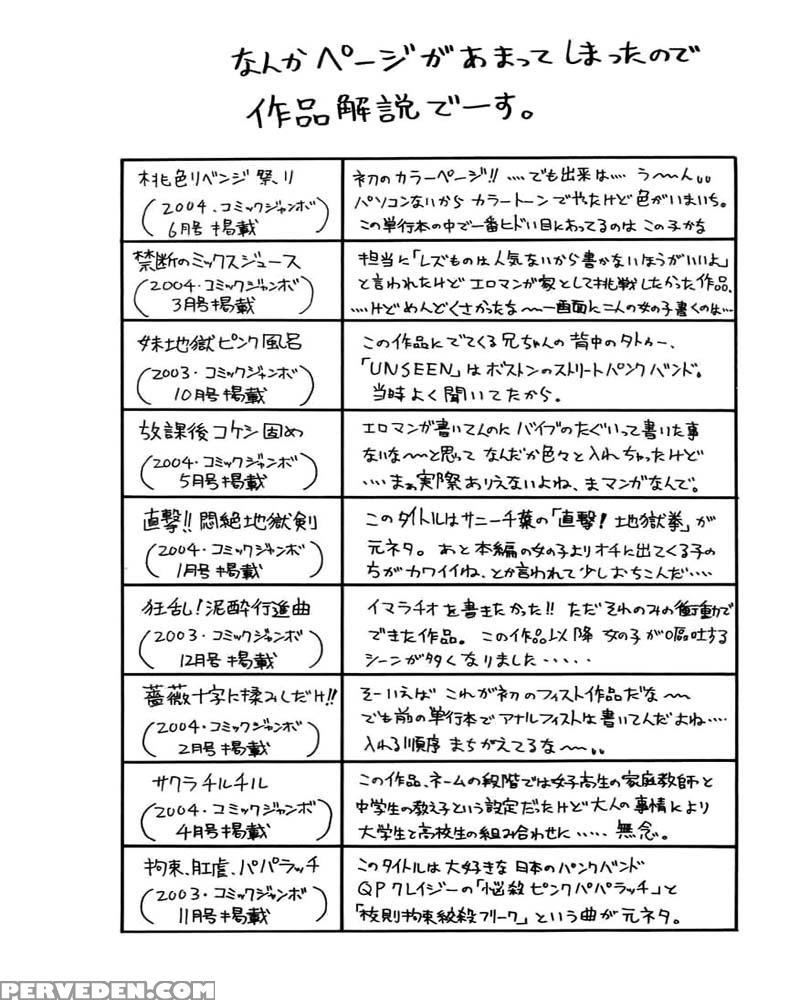 なんかページがあまってしまったので
作品解説でーす。
桃色リベンジ祭り
(2004.コミックジャンボ
6月号掲載)
初のカラーページ!! ‥‥でも出来は‥‥う〜〜ん。。
パソコンないからカラートーンでやったけど色がいまいち。
この単行本の中で一番ヒドい目にあってるのはこの子かな
禁断のミックスジュース
(2004・コミックジャンボ
3月号掲載)
担当に「レズものは人気ないから書かないほうがいいよ」
と言われたけどエロマンガ家として挑戦したかった作品、
‥‥けどめんどくさかったな〜〜一画面に二人の女の子書くのは…
妹地獄ピンク風呂
(2003・コミックジャンボ
10月号掲載)
この作品にでてくる兄ちゃんの背中のタトゥー、
「UNSEEN」はボストンのストリートパンクバンド。
当時よく聞いてたから。
放課後コケシ固め
(2004・コミックジャンボ
5月号掲載)
エロマンガ書いてんのにバイブのたぐいって書いた事
ないな〜〜と思ってなんだか色々と入れちゃったけど
‥‥まぁ実際ありえないよね、まマンガなんで。
直撃!!悶絶地獄剣
(2004・コミックジャンボ
1月号掲載)
このタイトルはサニー千葉の「直撃!地獄拳」が
元ネタ。あと本編の女の子よりオチに出てくる子の
ちがカワイイね、とか言われて少しおちこんだ‥‥
狂乱!泥酔行進曲
(2003・コミックジャンボ
12月号掲載)
イマラチオを書きたかった!!ただそれのみの衝動で
できた作品。この作品以降女の子が嘔吐する
シーンが多くなりました‥‥‥
薔薇十字に揉みしだけ!!
(2004・コミックジャンボ
2月号掲載)
そーいえばこれが初のフィスト作品だな〜〜
でも前の単行本でアナルフィストは書いてんだよね‥‥
入れる順序まちがえてるな〜〜。。
サクラチルチル
(2004・コミックジャンボ
4月号掲載)
この作品、ネームの段階では女子高生の家庭教師と
中学生の教え子という設定だったけど大人の事情により
大学生と高校生の組み合わせに‥‥‥無念。
拘束、肛虐、パパラッチ
(2003・コミックジャンボ
11月号掲載)
このタイトルは大好きな日本のパンクバンド
QPクレイジーの「悩殺ピンクパパラッチ」と
「校則拘束絞殺フリーク」という曲が元ネタ。
PERVEDEN.COM